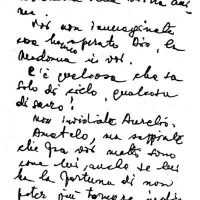 ma.
Voi non immaginate
cosa ha operato Dio, la
Madonna in voi.
C'è qualcosa che sa
solo di cielo, qualcosa
di sacro!
non invidiate Aurelio.
Anatelo, ma sappiate
che fra voi molti sono
come lui, anche se lui
ha la fortuna di non
poter più tornare